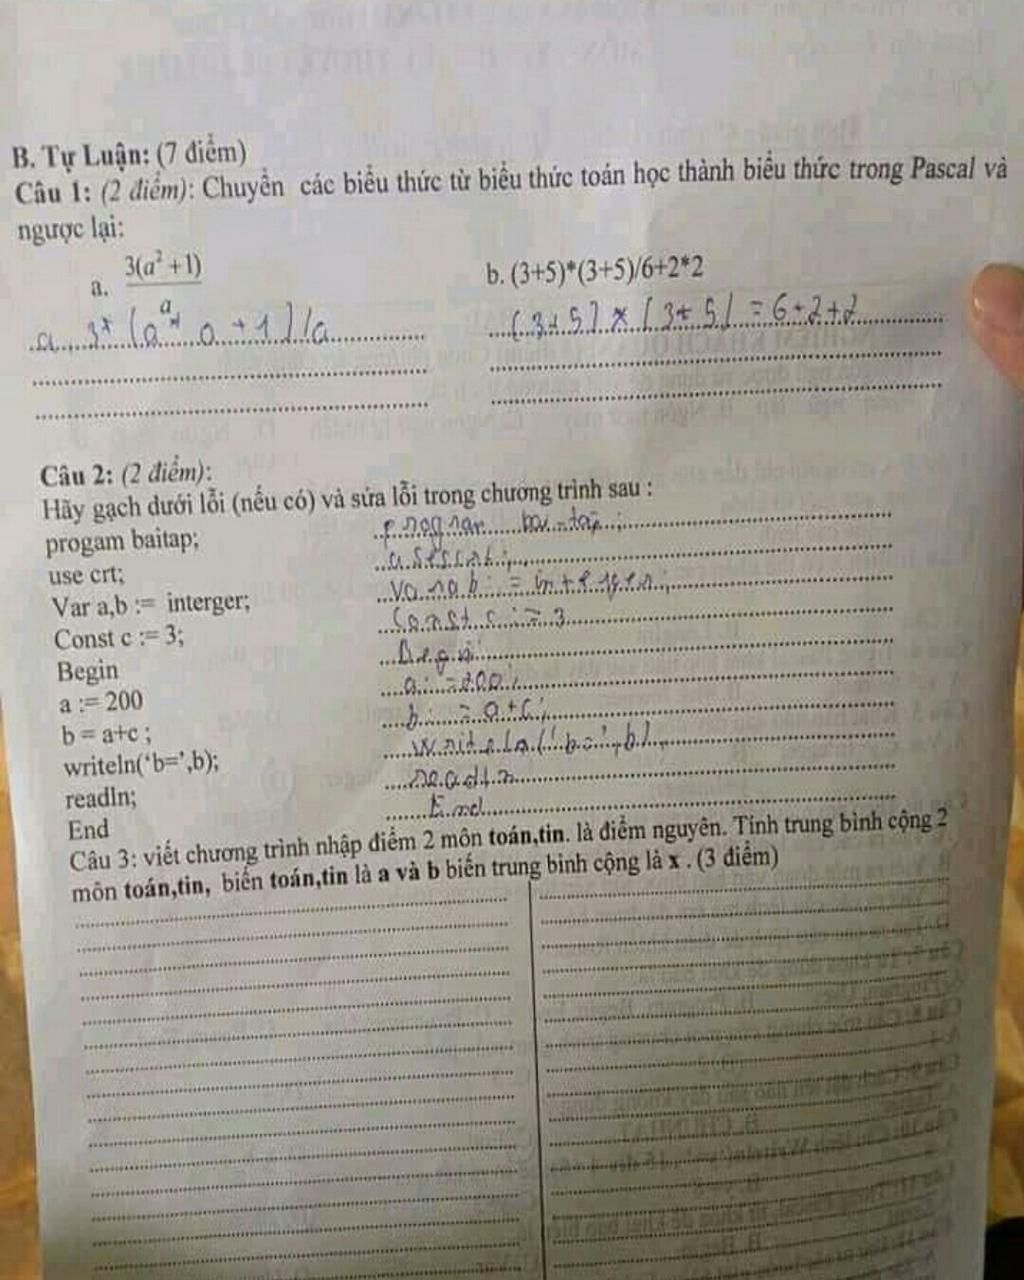 B. Tự Luận: (7 điểm)
Câu 1: (2 điểm): Chuyển các biểu thức từ biểu thức toán học thành biểu thức trong Pascal và
ngược lại:
a. 3(a² + 1)
a
b. (3+5)*(3+5)/6+2*2
a, 3* (a* a + 1)/a
(3+5) x (3+5) = 6+2+2
Câu 2: (2 điểm):
Hãy gạch dưới lỗi (nếu có) và sửa lỗi trong chương trình sau :
progam baitap;
use crt;
uses crt;
Var a,b := interger;
Const c := 3;
Const c := 3
Begin
Begin
a := 200
a := 200;
b = a+c ;
b := a+c;
writeln('b=',b);
writeln('b=',b)
readln;
readln
End
End
Câu 3: viết chương trình nhập điểm 2 môn toán,tin. là điểm nguyên. Tính trung bình cộng 2
môn toán,tin, biến toán,tin là a và b biến trung bình cộng là x . (3 điểm)